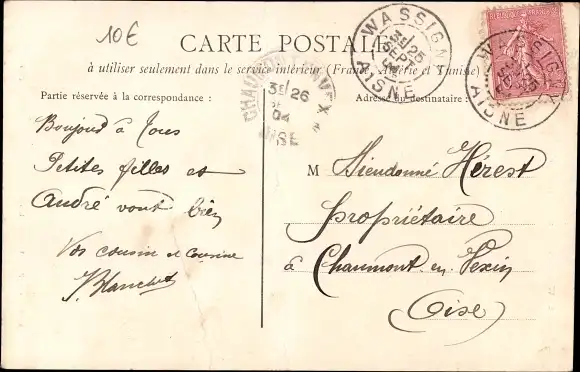 10€
CARTE POSTALE
à utiliser seulement dans le service intérieur (France, Algérie et Tunisie)
Partie réservée à la correspondance :
Adresse du destinataire :
WASSIGNY
3E/25
SEPT
04
AISNE
WASSIGNY
AISNE
CHAUMONT-EN-VEXIN
3E/26
04
OISE
Bonjour à Tous
Petites filles et
André vont bien
Vos cousin et Cousine
Blanchet
M Dieudonné Hérest
propriétaire
à Chaumont en Vexin
Oise